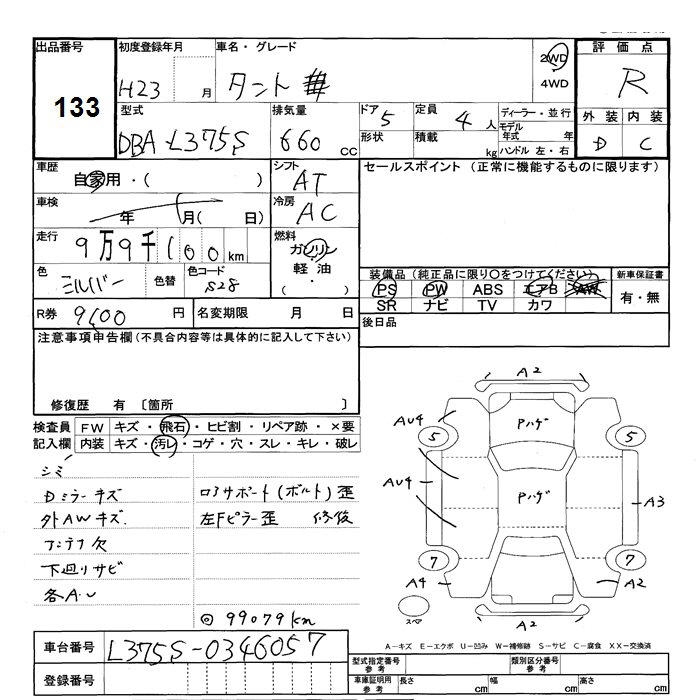 出品番号
133
初度登録年月 H23 月
車名・グレード タント
2WD
4WD
評価点
R
型式 DBA-L375S
排気量 660 cc
ドア 5
形状
定員 4 人
積載 kg
ディーラー・並行
モデル年式 年
ハンドル 左・右
外装 内装
D C
車歴 自家用・( )
シフト AT
セールスポイント (正常に機能するものに限ります)
車検 年 月( 日)
冷房 AC
走行 9万9千100 km
燃料 ガソリン
軽油
・
色 シルバー
色替
色コード S28
装備品 (純正品に限り○をつけてください)
PS PW ABS エアB AW
SR ナビ TV カワ
新車保証書
有・無
R券 9600 円
名変期限 月 日
後日品
注意事項申告欄(不具合内容等は具体的に記入して下さい)
修復歴 有 〔箇所 〕
検査員記入欄
FW キズ・飛石・ヒビ割・リペア跡・×要
内装 キズ・汚レ・コゲ・穴・スレ・キレ・破レ
シミ
Dミラーキズ
外AWキズ
アンテナ欠
下廻りサビ
各A・U
コアサポート(ボルト)歪
左Fピラー歪 修復
◎99079km
A2
AU4
Pハゲ
5
5
AU4
Pハゲ
A3
7
7
A4
A2
スペア
A2
A-キズ E-エクボ U-凹み W-補修跡 S-サビ C-腐食 XX-交換済
車台番号 L375S-0346057
登録番号
型式指定番号 参考
類別区分番号 参考
車庫証明用 参考
長さ cm
幅 cm
高さ cm